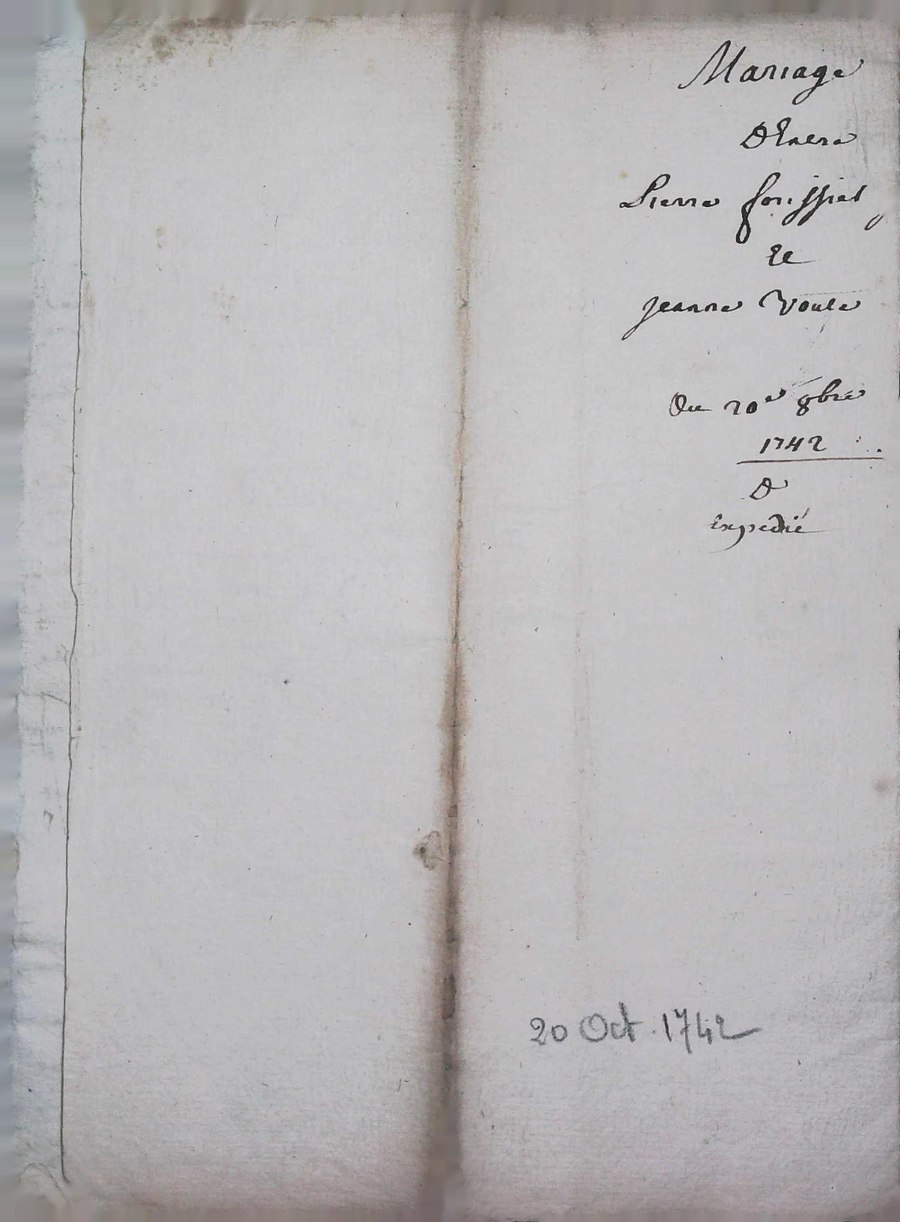 Mariage
D'Entre
Pierre forissier
Et
jeanne Voute
Du 20e 8bre
1742
D
Expedié
20 Oct. 1742